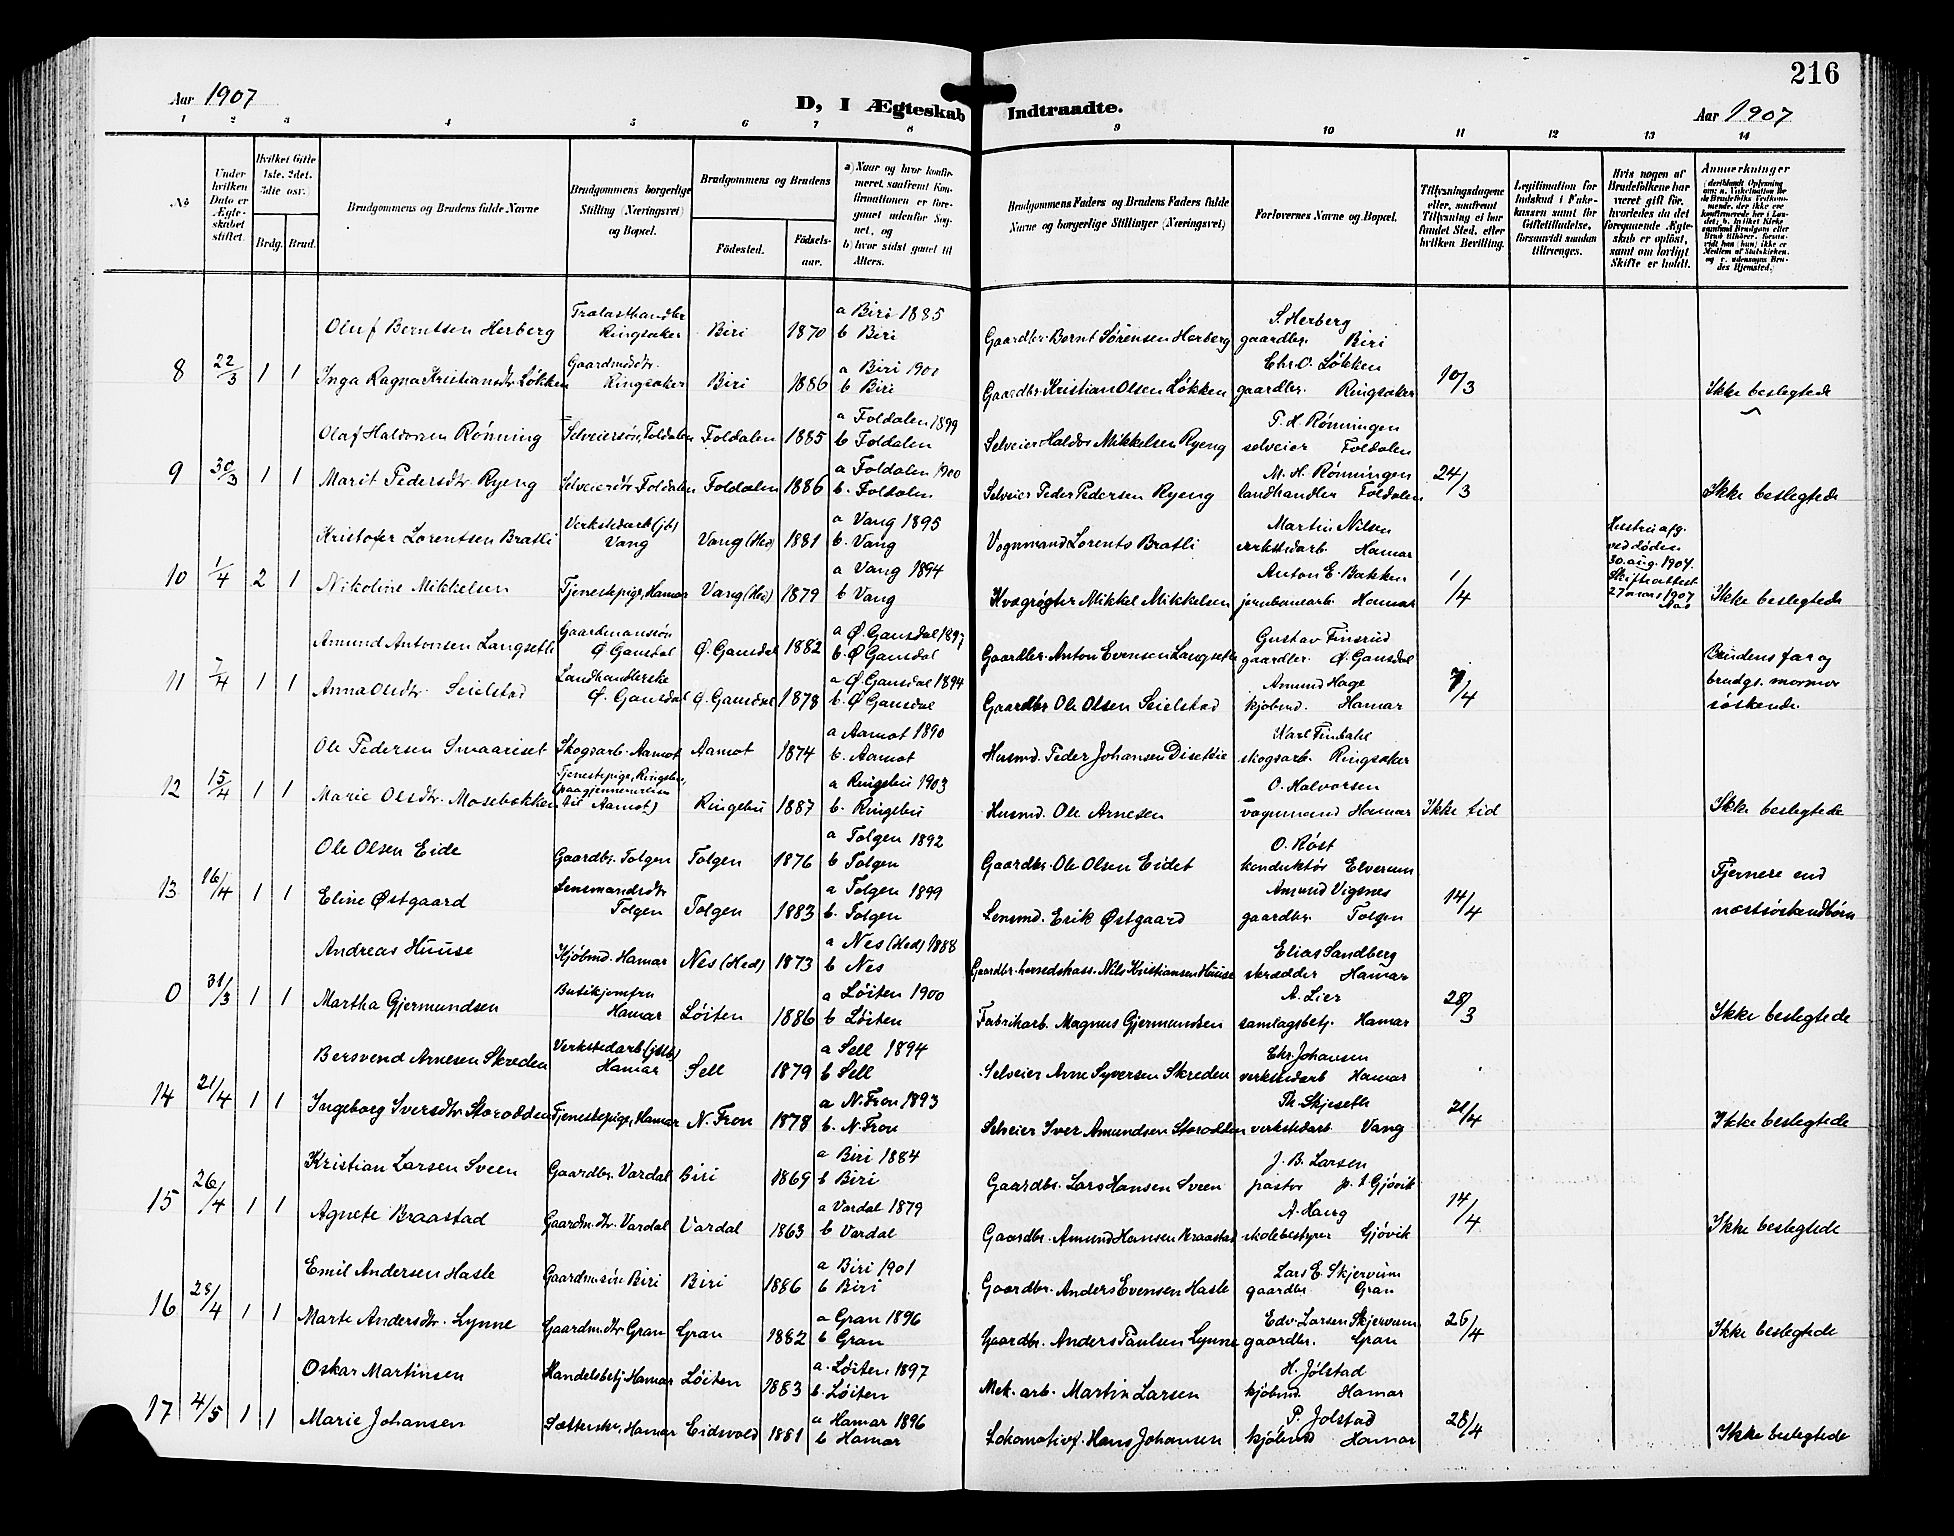 216
Aar 1907
D, I Ægteskab Indtraadte.
Aar 1907
1 2 3 4 5 6 7 8 9 10 11 12 13 14
No
Under hvilken Dato er Ægteskabet stiftet.
Hvilket Gifte 1ste. 2det. 3die osv.)
Brdg. Brud.
Brudgommens og Brudens fulde Navne
Brudgommens borgerlige Stilling (Næringsvei) og Bopæl.
Brudgommens og Brudens
Födested.
Födsels-aar.
a) Naar og hvor konfirmeret, saafremt Konfirmationen er foregaaet udenfor Sognet, og
b) hvor sidst gaaet til Alters.
Brudgommens Faders og Brudens Faders fulde Navne og borgerlige Stillinger (Næringsvei)
Forlovernes Navne og Bopæl.
Tillysningsdagene eller, saafremt Tillysning ei har fundet Sted, efter hvilken Bevilling.
Legitimation for Indskud i Enkekassen samt for Giftetilladelse, forsaavidt saadan tiltrænges.
Hvis nogen af Brudefolkene har været gift för, hvorledes da det foregaaende Ægteskab er oplöst, samt om lovligt Skifte er holdt.
Anmærkninger
Oluf Berntsen Herberg Trælasthandler Ringsaker Biri 1870 a Biri 1885 b Biri Gaardbr. Bernt Sørensen Herberg S. Herberg gaardbr. Biri
8 22/3 1 1 Inga Ragna Kristiansdtr Løkken Gaardmdsdtr. Ringsaker Biri 1886 a Biri 1901 b Biri Gaardbr. Kristian Olsen Løkken Chr. O. Løkken gaardbr. Ringsaker 10/3 Ikke beslegtede
Olaf Haldorsen Rønning Selveiersøn, Foldalen Foldalen 1885 a Foldalen 1899 b Foldalen Selveier Haldor Mikkelsen Ryeng P. H. Rønningen selveier Foldalen
9 30/3 1 1 Marit Pedersdtr. Ryeng Selveierdtr Foldalen Foldalen 1886 a Foldalen 1900 b. Foldalen Selveier Peder Pedersen Ryeng M. H. Rønningen landhandler Foldalen 24/3 Ikke beslegtede
Kristofer Lorentsen Bratli Verkstedarb (jb) Vang Vang (Hed) 1881 a Vang 1895 b. Vang Vognmand Lorents Bratli Martin Nilsen verkstedarb. Hamar Hustru afg. ved døden 30. aug. 1904. Skifteattest 27 mars 1907
10 1/4 2 1 Nikoline Mikkelsen Tjenestepige, Hamar Vang (Hed) 1879 a Vang 1894 b Vang Kvægrøgter Mikkel Mikkelsen Anton E. Bakken jernbanearb. Hamar 1/4 Ikke beslegtede
Amund Antonsen Langseth Gaardmansøn Ø Gausdal Ø. Gausdal 1882 a Ø. Gausdal 1897 b. Ø Gausdal Gaardbr. Anton Evensen Langseth Gustav Finsrud gaardbr. Ø. Gausdal
11 7/4 1 1 Anna Olsdtr. Seielstad Landhandlerske Ø. Gausdal Ø. Gausdal 1878 a Ø Gausdal 1894 b. Ø Gausdal Gaardbr Ole Olsen Seielstad Amund Hage kjøbmd. Hamar 7/4 Brudens far og brudgs. mormor søskende
Ole Pedersen Smaariset Skogsarb. Aamot Aamot 1874 a Aamot 1890 b. Aamot Husmd. Peder Johansen Karl Fundahl skogsarb. Ringsaker
12 15/4 1 1 Marie Olsdtr. Mosebakken Tjenestepige, Ringebu, (paa gjennemreise til Aamot) Ringebu 1887 a Ringebu 1903 b. Ringebu Husmd. Ole Arnesen O. Halvorsen vognmand Hamar Ikke tid Ikke beslegtede
Ole Olsen Eide Gaardbr. Tolgen Tolgen 1876 a Tolgen 1892 b Tolgen Gaardbr. Ole Olsen Eidet O. Røst konduktør Elverum
13 16/4 1 1 Eline Østgaard Lensmandsdtr Tolgen Tolgen 1883 a Tolgen 1899 b. Tolgen Lensmd. Erik Østgaard Amund Vigsnes gaardbr. Tolgen 14/4 Fjernere end næstsøskendbørn
Andreas Huuse Kjøbmd. Hamar Nes (Hed) 1873 a Nes (Hed) 1888 b Nes Gaardbr. herredskass. Nils Kristiansen Huuse Elias Sandberg skrædder Hamar
0 31/3 1 1 Martha Gjermundsen Butikjomfru Hamar Løiten 1886 a Løiten 1900 b Løiten Fabrikarb. Magnus Gjermundsen A. Lier samlagsbetj. Hamar 28/3 Ikke beslegtede
Bersvend Arnesen Skreden Verkstedarb (jstb) Hamar Sell 1879 a Sell 1894 b Sell Selveier Arne Syversen Skreden Chr. Johansen verkstedarb Hamar
14 21/4 1 1 Ingeborg Iversdtr. Storødden Tjenestepige, Hamar N. Fron 1878 a. N. Fron 1893 b. N. Fron Selveier Iver Amundsen Storødden Th. Skjeseth verkstedarb. Vang 21/4 Ikke beslegtede
Kristian Larsen Sveen Gaardbr. Vardal Biri 1869 a Biri 1884 b Biri Gaardbr. Lars Hansen Sveen J. B. Larsen pastor p. t Gjøvik
15 26/4 1 1 Agnete Braastad Gaardm.dtr. Vardal Vardal 1863 a Vardal 1879 b Vardal Gaardbr. Amund Hansen Braastad A. Haug skolebestyrer Gjøvik 14/4 Ikke beslegtede
Emil Andersen Hasle Gaardm.søn Biri Biri 1886 a Biri 1901 b Biri Gaardbr. Anders Evensen Hasle Lars E. Skjervum gaardbr Gran
16 28/4 1 1 Marte Andersdtr. Lynne Gaardm.dtr Gran Gran 1882 a Gran 1896 b Gran Gaardbr. Anders Paulsen Lynne Edv. Larsen Skjervum gaardbr. Gran 26/4 Ikke beslegtede
Oskar Martinsen Handelsbetj. Hamar Løiten 1883 a. Løiten 1897 b. Løiten Mek. arb. Martin Larsen H. Jølstad kjøbmd. Hamar
17 4/5 1 1 Marie Johansen Sætterske, Hamar Eidsvold 1881 a Hamar 1896 b Hamar Lokomotivf. Hans Johansen P. Jølstad kjøbmd Hamar 28/4 Ikke beslegtede